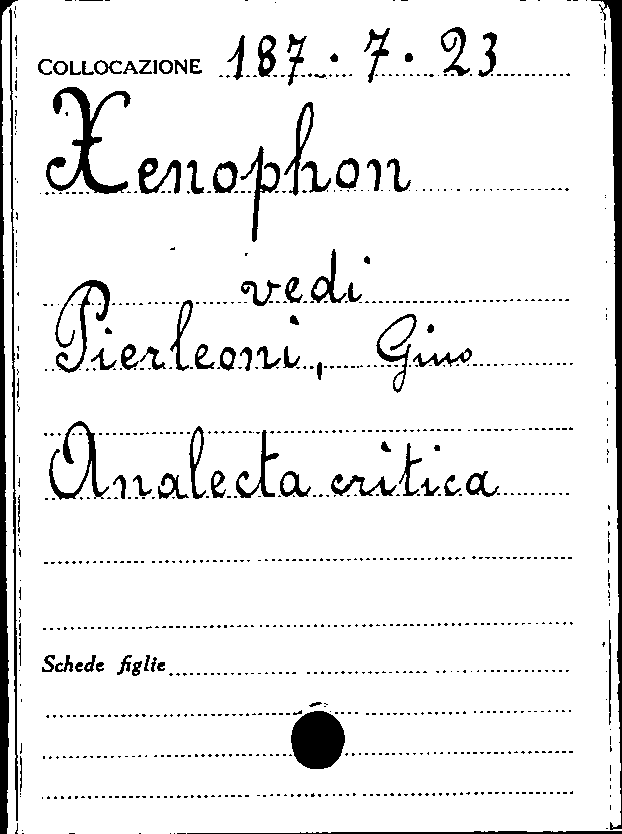 COLLOCAZIONE 187.7.23
Xenophon
vedi
Pierleoni, Gino
Analecta critica
Schede figlie